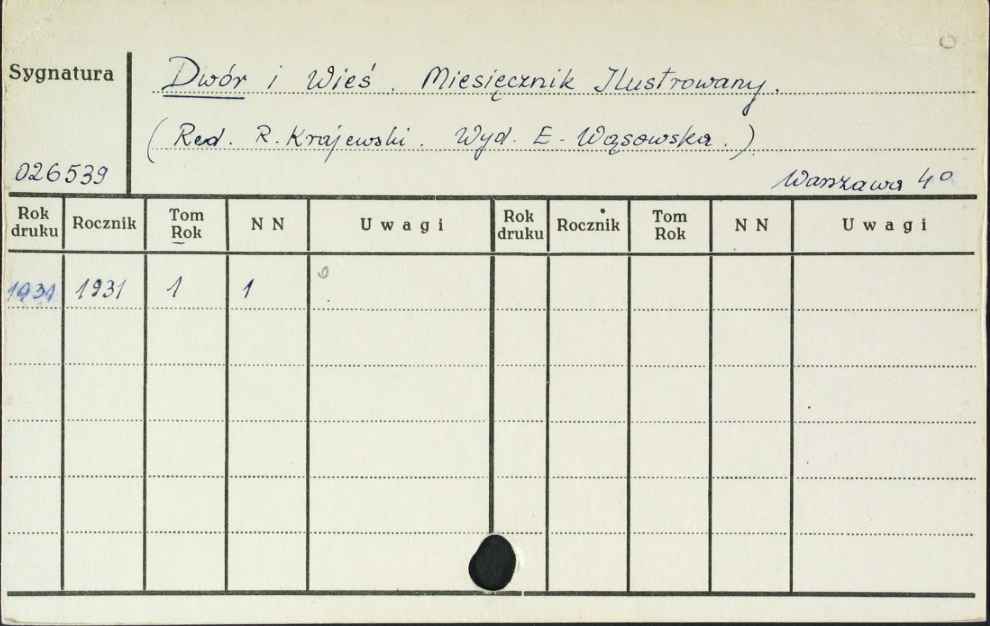 Sygnatura
Dwór i Wieś. Miesięcznik Ilustrowany.
(Red. R. Krajewski. Wyd. E. Wąsowska.)
026539
Warszawa 4°
Rok druku Rocznik Tom Rok N N Uwagi Rok druku Rocznik Tom Rok N N Uwagi
1931 1931 1 1